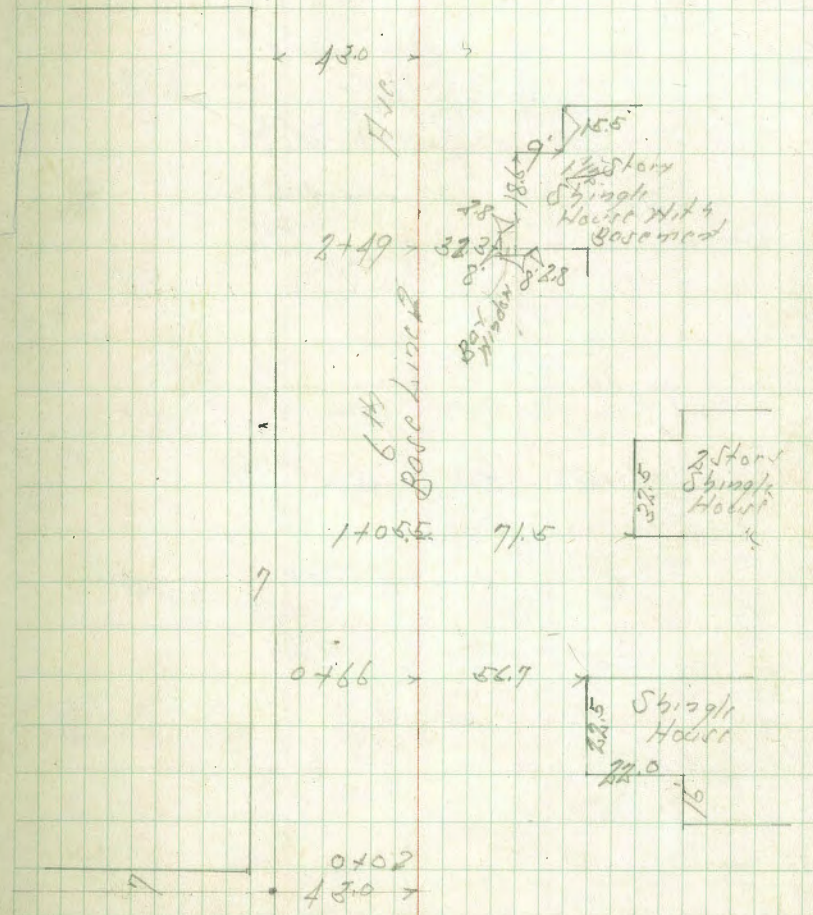 43.0
Ave.
15.5
9.
18.6
1 1/2 Story
Shingle
House With
Basement
2.8
2+49 32.3
8. 8. 2.8
Bay
Window
6 th
Base Line
2 Story
Shingle
House
32.5
1+05.5 71.5
7
0+66 56.7
Shingle
House
22.5
22.0
16
0+02
7 43.0